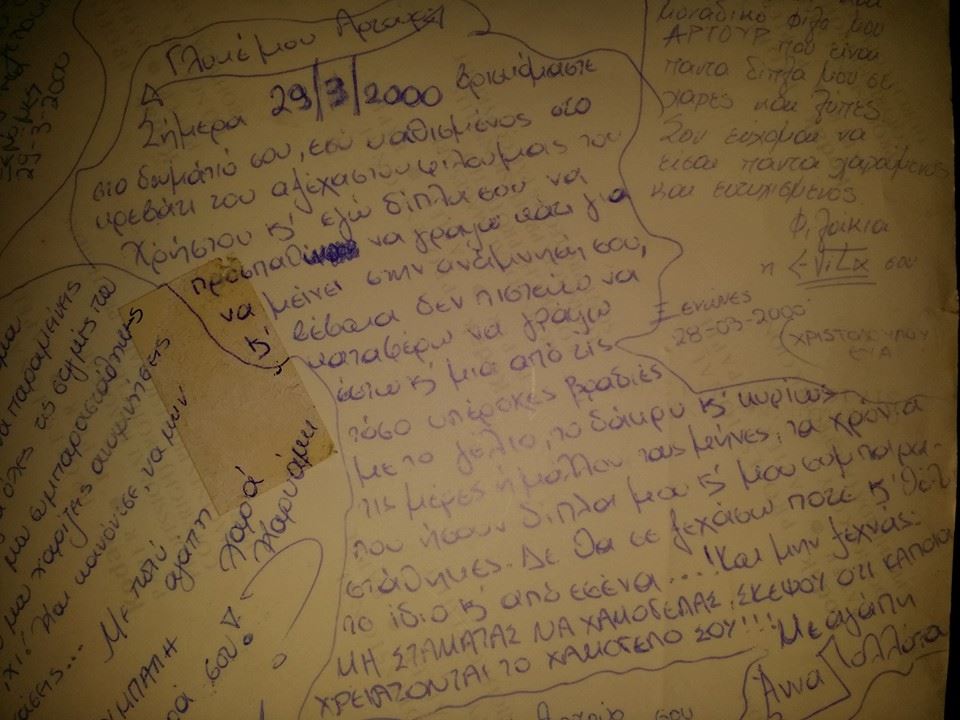 Γλυκέ μου Αρταίκ
Σήμερα 29/3/2000 βρισκόμαστε
στο δωμάτιό σου, εσύ καθισμένος στο
κρεβάτι του αξέχαστου φίλου μας του
Χρήστου κ' εγώ δίπλα σου να
προσπαθ να γράψω κάτι για
να μείνει στην ανάμνησή σου,
κ' βέβαια δεν πιστεύω να
καταφέρω να γράψω
έστω κ' μια από τις
τόσο υπέροχες βραδιές
με το γέλιο, το δάκρυ κ' κυρίως
τις μέρες ή μάλλον τους μήνες, τα χρόνια
που ήσουν δίπλα μου κ' μου συμπαρα-
στάθηκες. Δε θα σε ξεχάσω ποτέ κ' θέλω
το ίδιο κ' από εσένα....! Και μην ξεχνάς:
ΜΗ ΣΤΑΜΑΤΑΣ ΝΑ ΧΑΜΟΓΕΛΑΣ, ΣΚΕΨΟΥ ΟΤΙ ΚΑΠΟΙΟΙ
ΧΡΕΙΑΖΟΝΤΑΙ ΤΟ ΧΑΜΟΓΕΛΟ ΣΟΥ!!!
Με αγάπη
Άννα
μοναδικό φίλο μου
ΑΡΤΟΥΡ που είναι
παντα διπλα μου σε
χαρες και λύπες
Σου εύχομαι να
εισαι παντα χαρούμενος
και ευτυχισμενος.
Φιλάκια
η Εύα σου
28-03-2000
(ΧΡΙΣΤΟΠΟΥΛΟΥ
ΕΥΑ
29-3-2000
να παραμείνεις
όλες τις στιγμές που
μου συμπαραστάθηκες
μου χαρίζεις αναμνήσεις
Και κανόνισε, να μην
Με πολύ
αγάπη
Χαρά
σου!